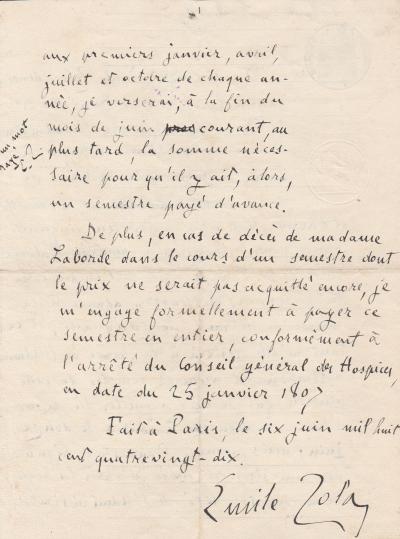 aux premiers janvier, avril,
juillet et octobre de chaque an-
née, je verserai, à la fin du
mois de juin courant, au
plus tard, la somme néces-
saire pour qu'il y ait, alors,
un semestre payé d'avance.
un mot
rayé
E. Z.
De plus, en cas de décès de madame
Laborde dans le cours d'un semestre dont
le prix ne serait pas acquitté encore, je
m'engage formellement à payer ce
semestre en entier, conformément à
l'arrêté du Conseil général des Hospices,
en date du 25 janvier 1807
Fait à Paris, le six juin mil huit
cent quatre vingt-dix.
Emile Zola